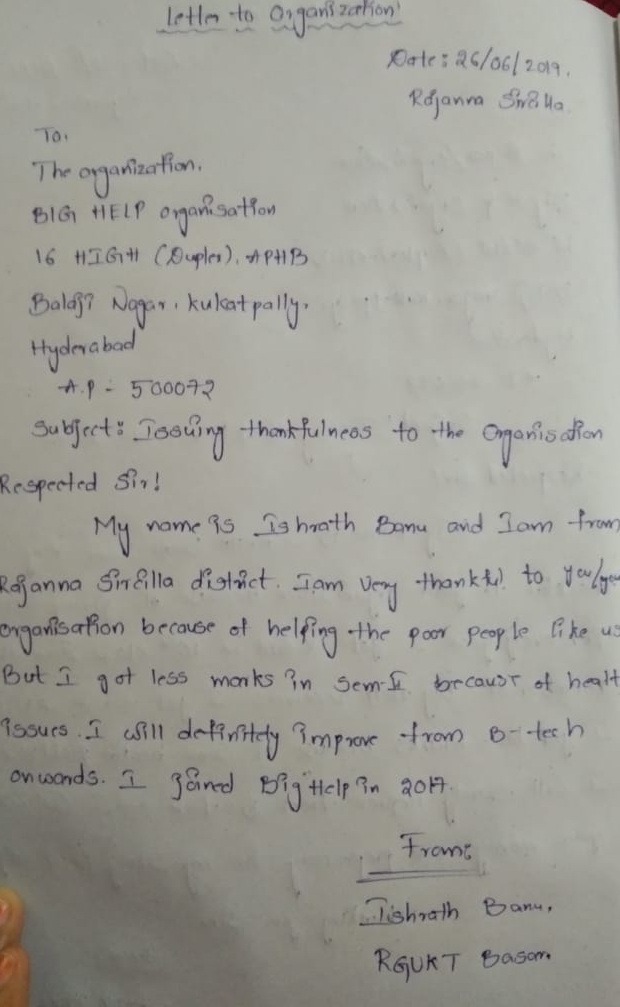 Letter to Organization!
Date: 26/06/2019.
Rajanna Sircilla.
To,
The organization.
BIG HELP organisation
16 HIGH (Duplex), APHB
Balaji Nagar, kukatpally,
Hyderabad
A.P - 500072
Subject: Issuing thankfulness to the Organisation
Respected Sir!
My name is Ishrath Banu and Iam from
Rajanna Sircilla district. Iam very thankful to you/you
organisation because of helping the poor people like us
But I got less marks in sem-I because of healt
issues. I will definitely improve from B-tech
onwards. I joined Big Help in 2017.
From:
Ishrath Banu,
RGUKT Basar.